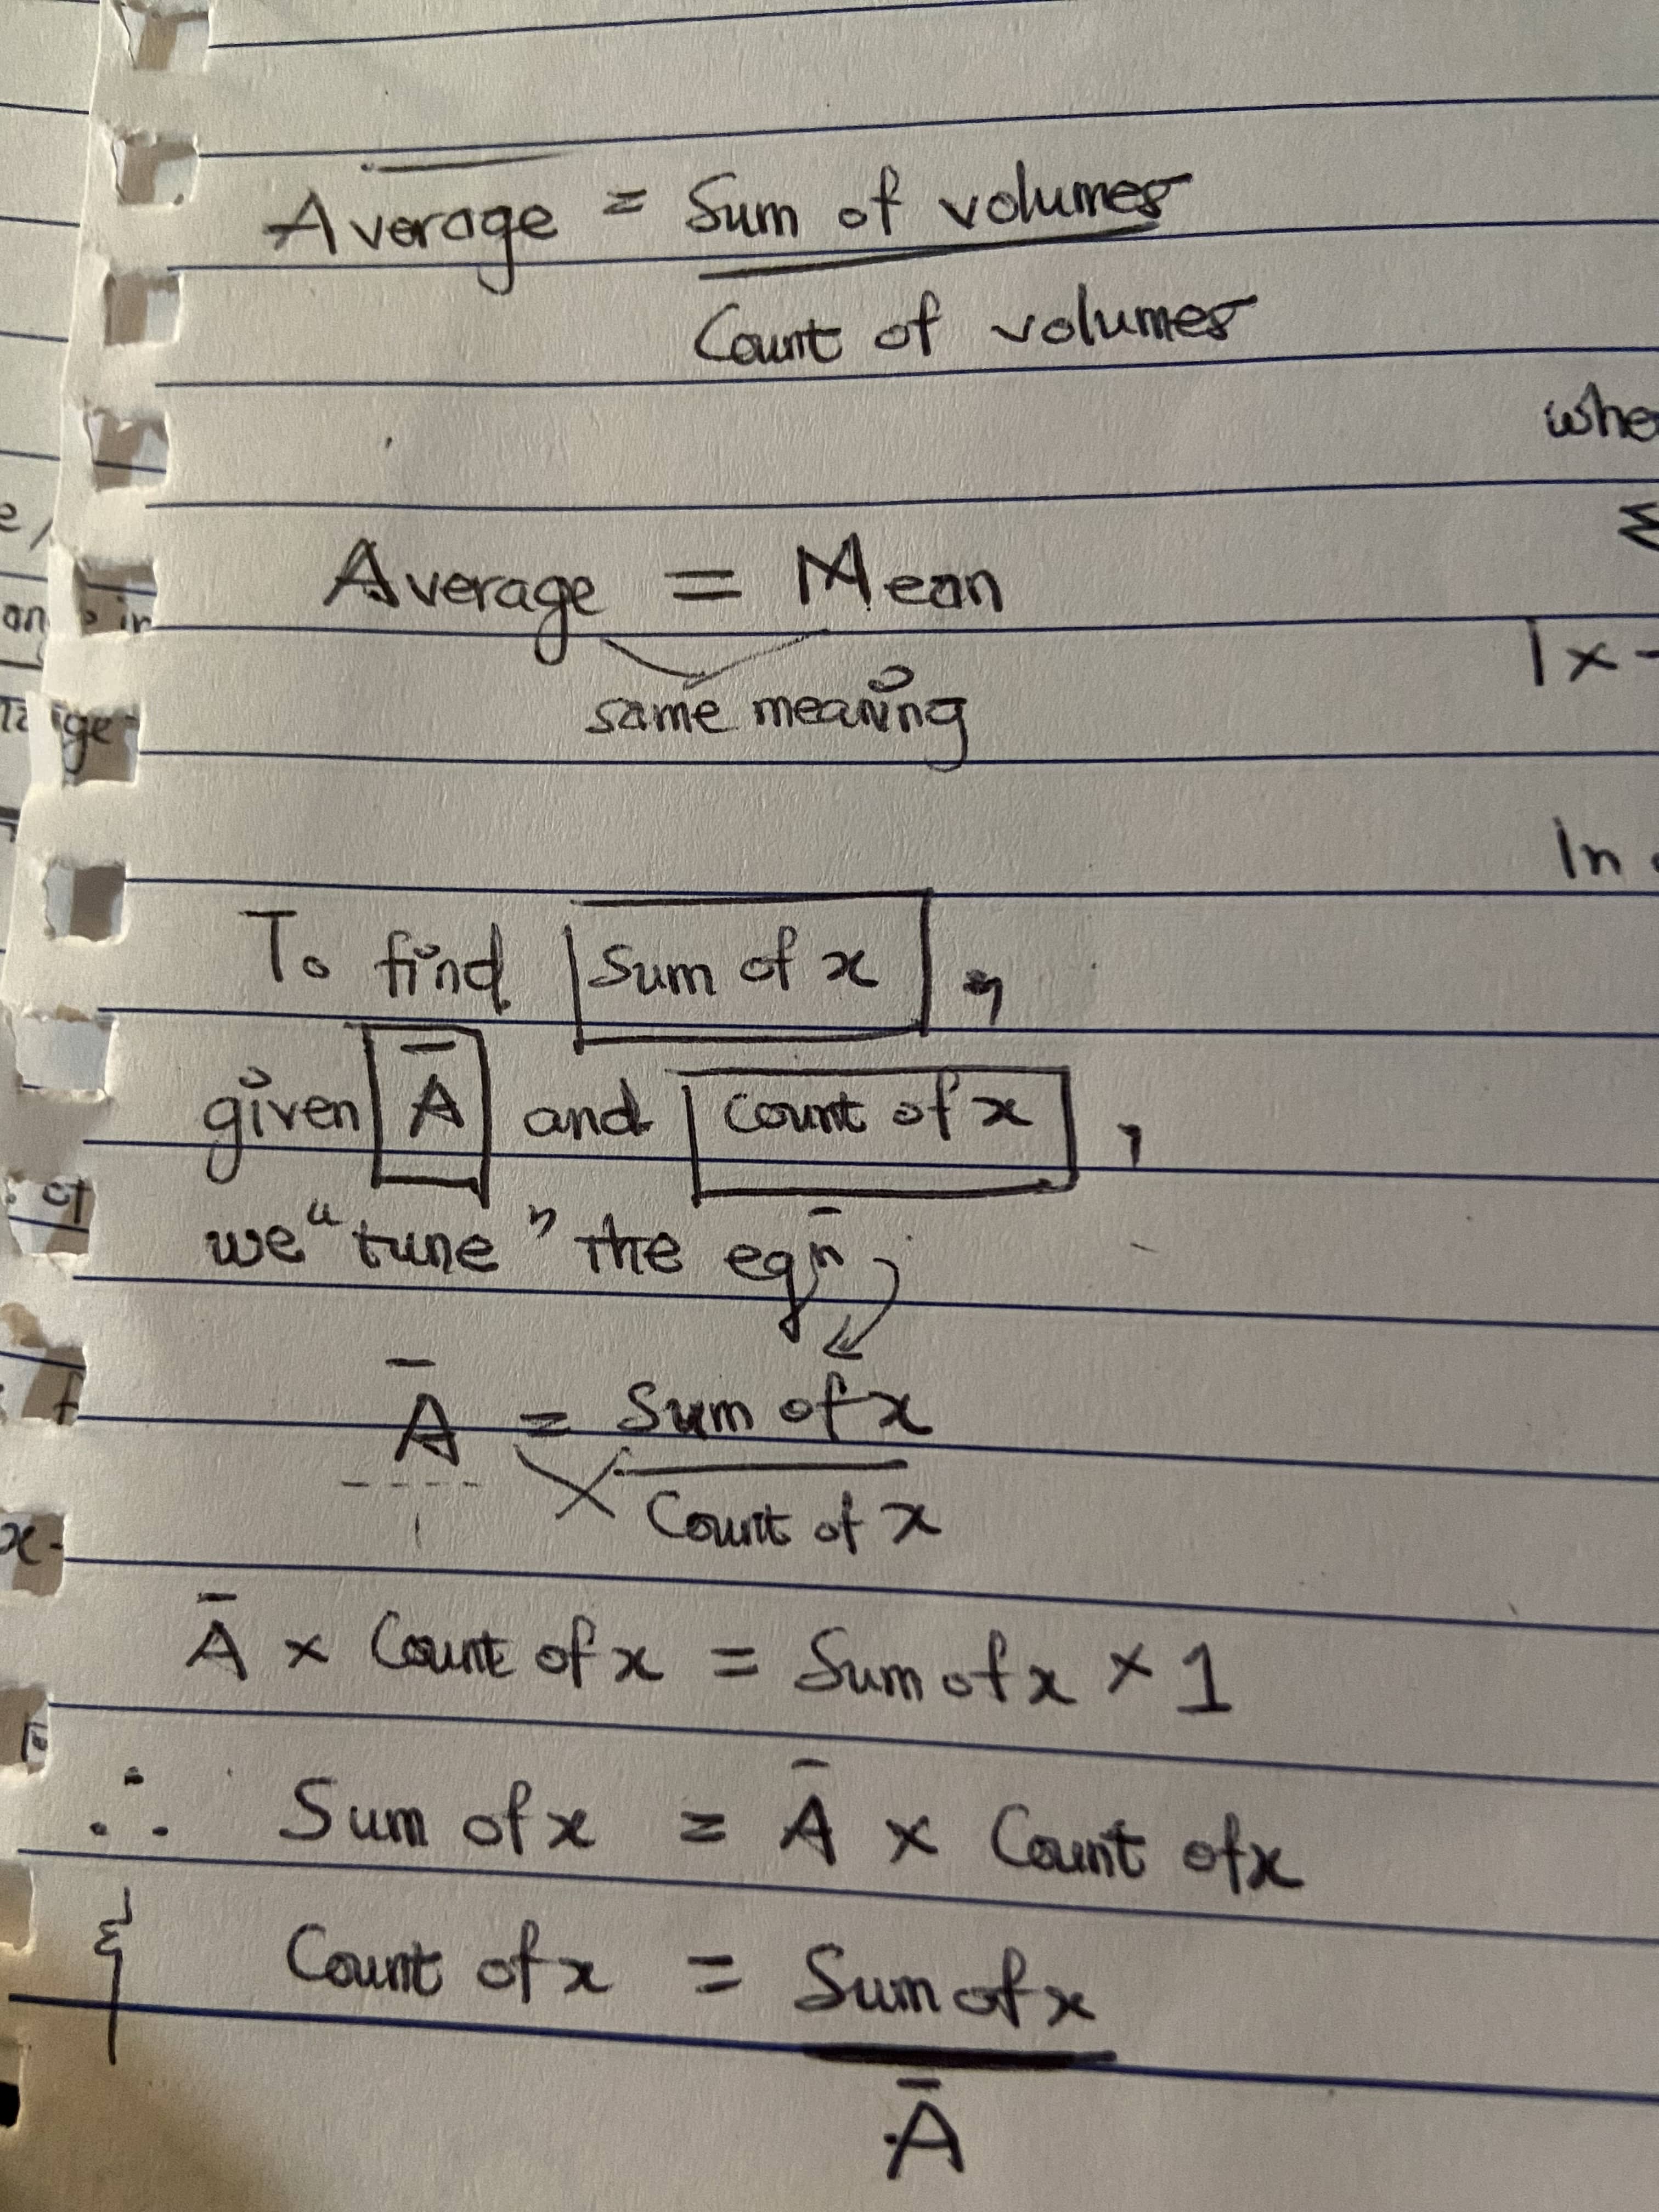 Average = Sum of volumes
Count of volumes
Average = Mean
same meaning
To find Sum of x,
given Ā and Count of x,
we "tune" the eqn̄
Ā = Sum of x
1 Count of x
Ā × Count of x = Sum of x × 1
∴ Sum of x = Ā × Count of x
& Count of x = Sum of x
Ā
Σ
|x-
In